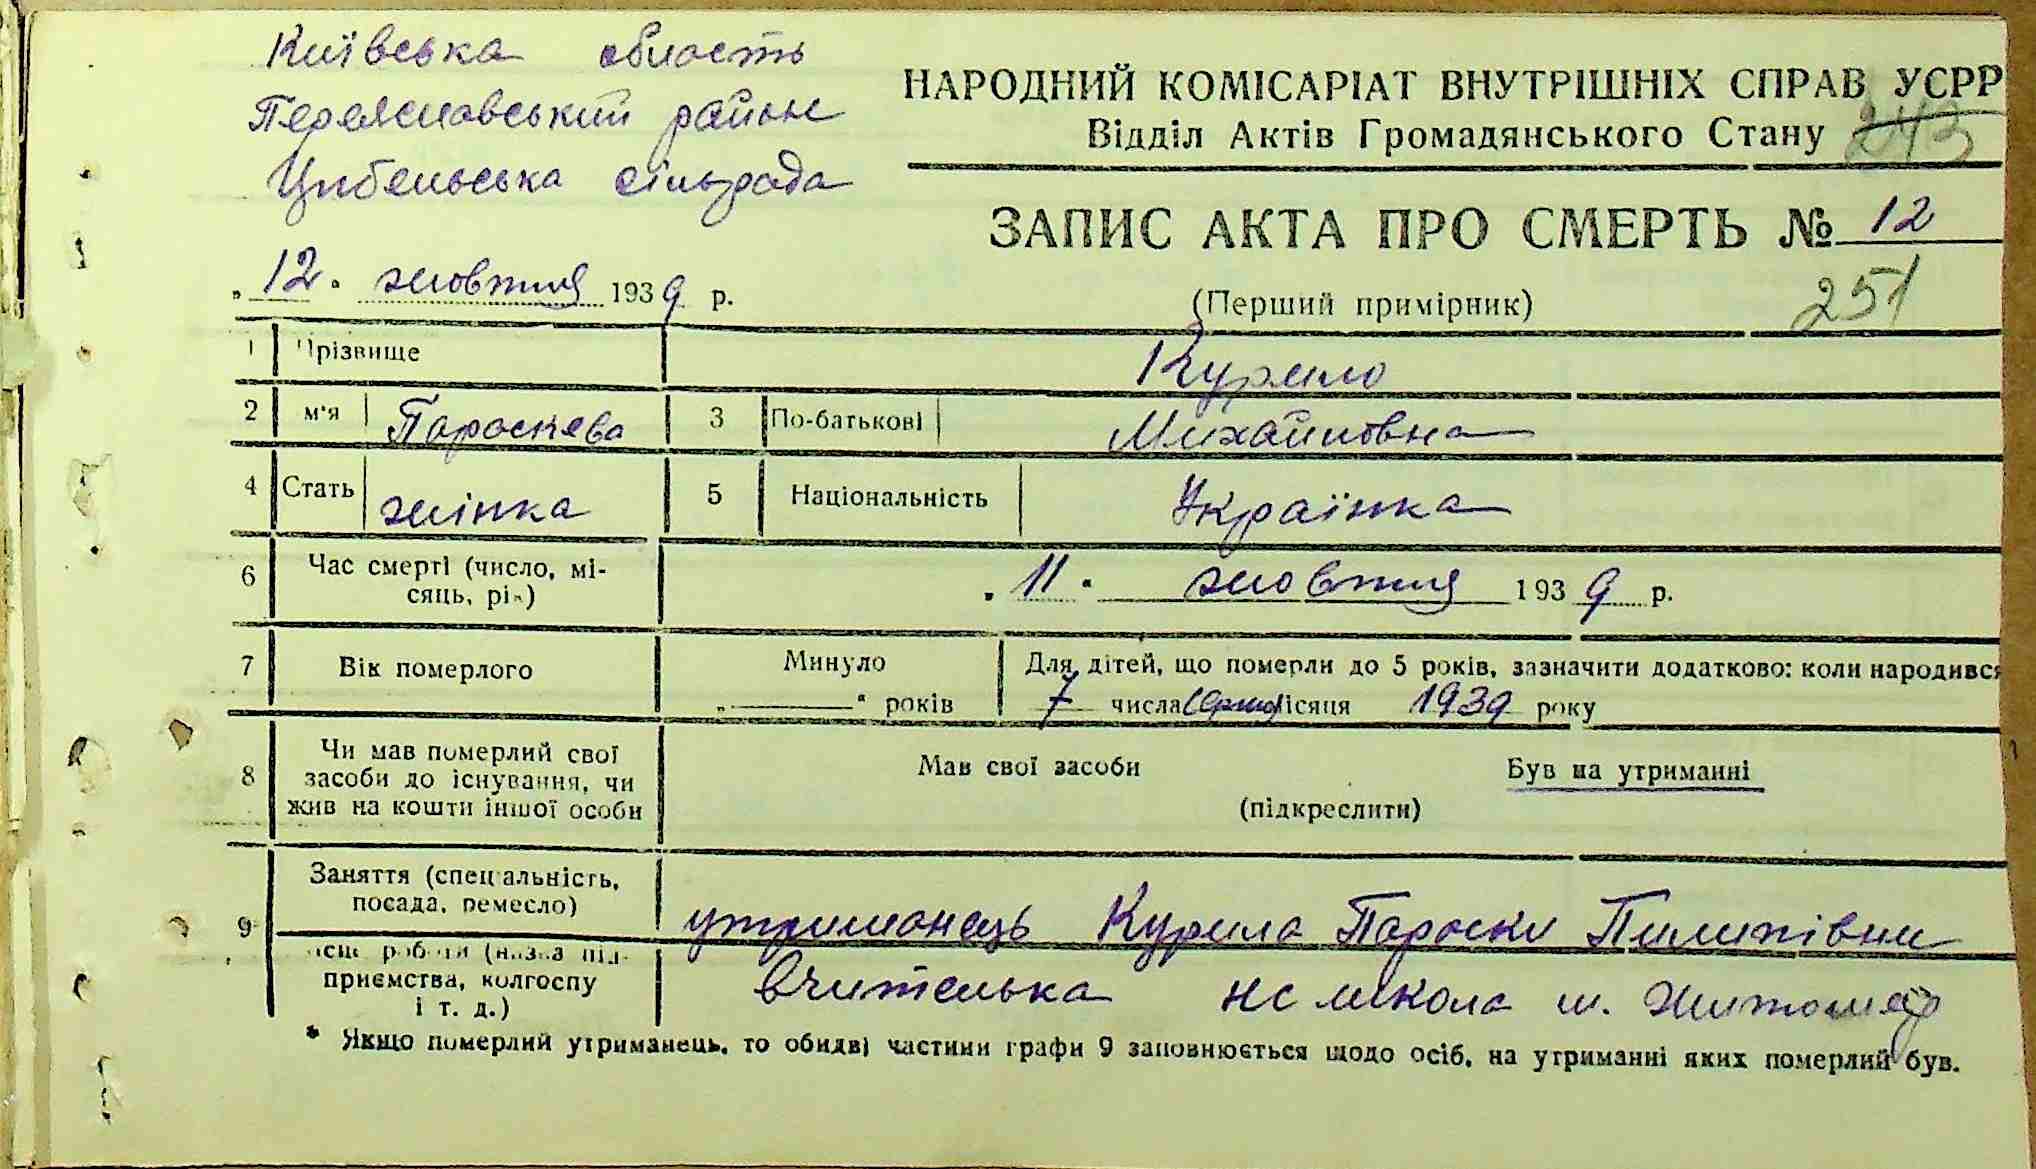 Київська область
Переяславський район
Цибельська сільрада
НАРОДНИЙ КОМІСАРІАТ ВНУТРІШНІХ СПРАВ УСРР
Відділ Актів Громадянського Стану 243
ЗАПИС АКТА ПРО СМЕРТЬ № 12
„12" жовтня 1939 р.
(Перший примірник) 251
1 Прізвище Курило
2 м'я Параскева 3 По-батькові Михайловна
4 Стать жінка 5 Національність Українка
6 Час смерті (число, мі-
сяць, рік) „11" жовтня 1939 р.
7 Вік померлого Минуло Для дітей, що померли до 5 років, зазначити додатково: коли народився
„—" років 7 числа місяця 1939 року
8 Чи мав померлий свої
засоби до існування, чи
жив на кошти іншої особи
Мав свої засоби Був на утриманні
(підкреслити)
9 Заняття (спеціальність,
посада, ремесло) утриманець Курила Параски Пилипівни
місце роботи (назва під-
приємства, колгоспу
і т. д.) вчителька нс школа м. Житомир
* Якщо померлий утриманець, то обидві частини графи 9 заповнюється щодо осіб, на утриманні яких померлий був.